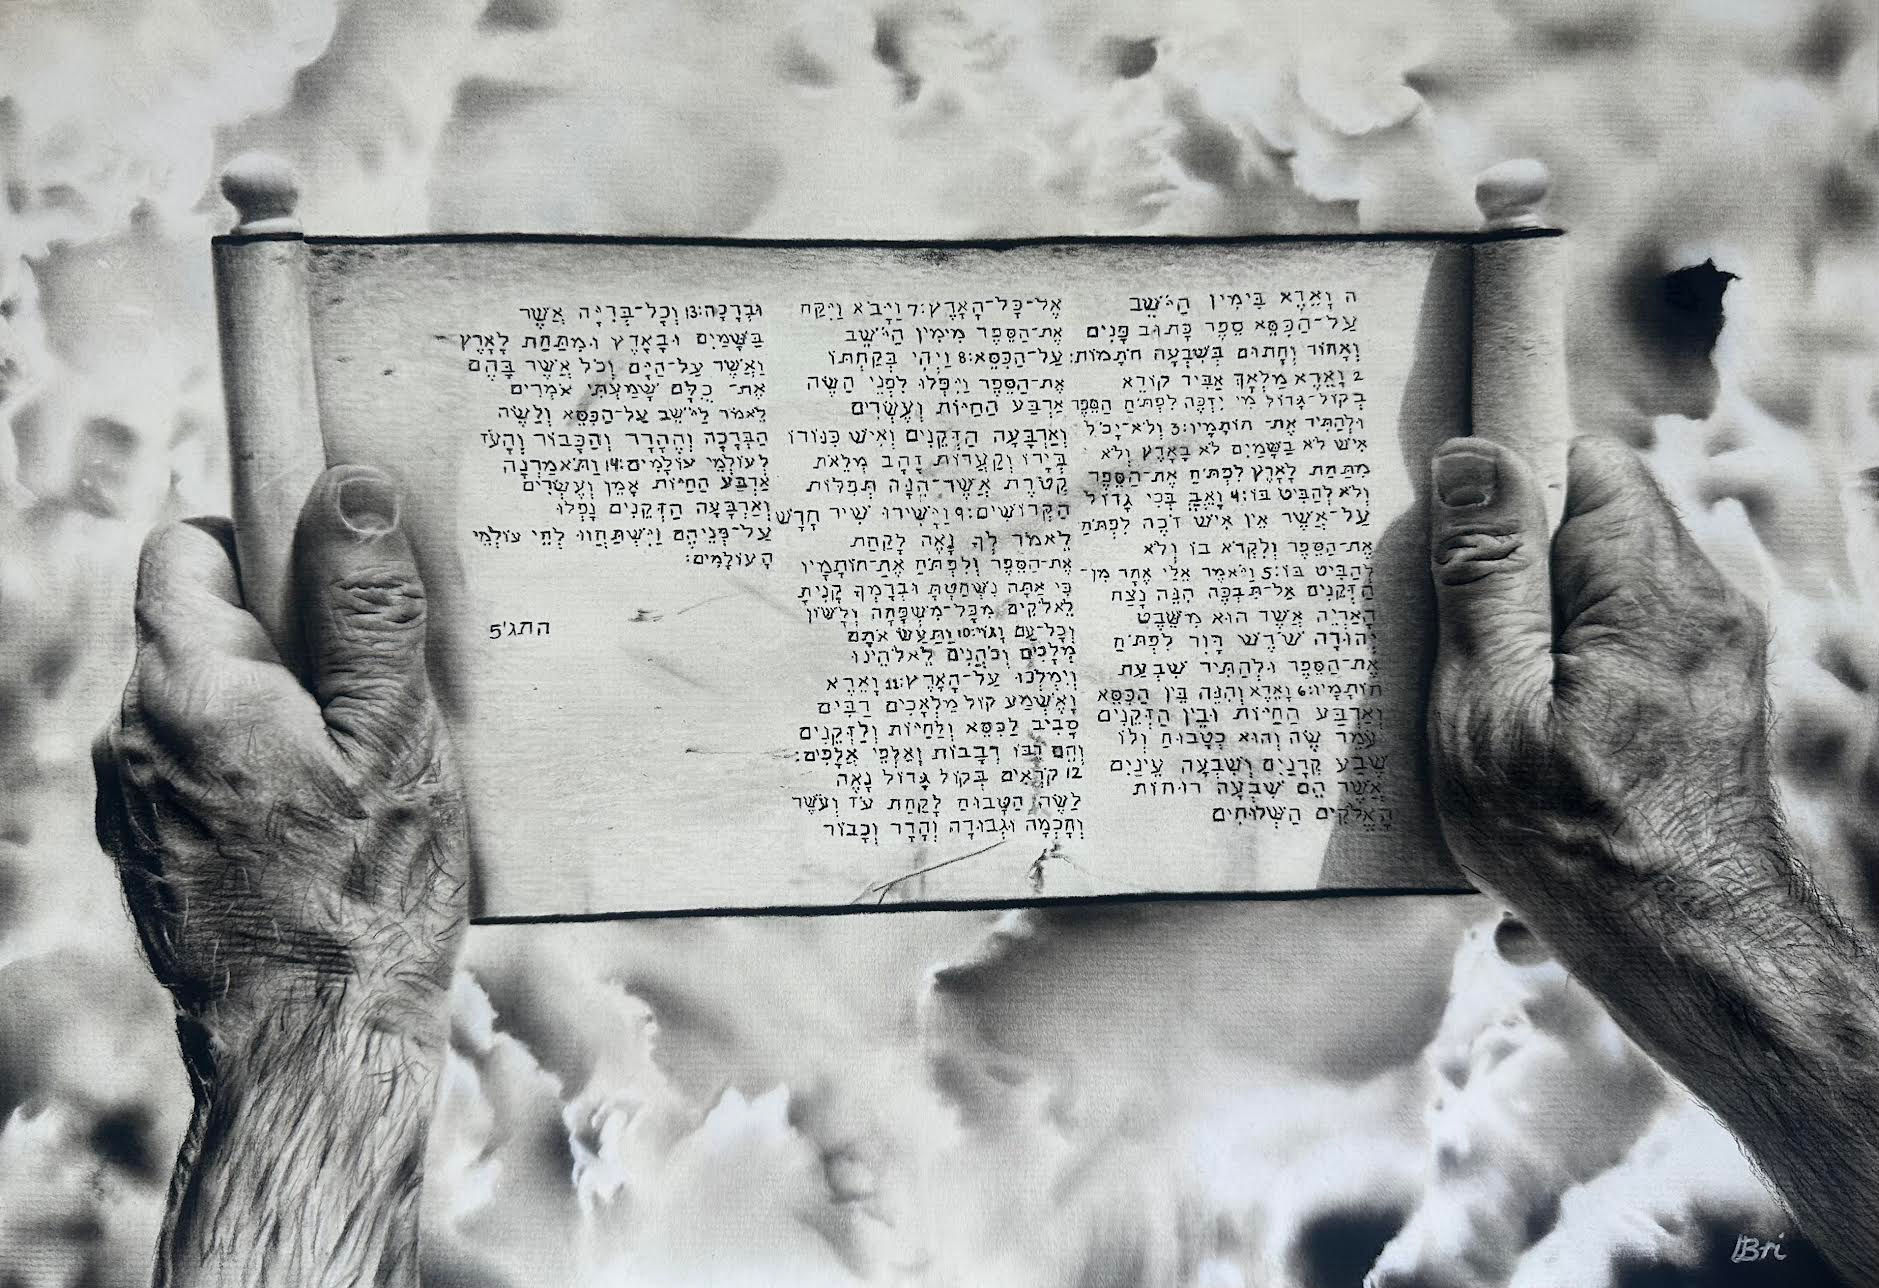 ה וָאֵרֶא בִּימִין הַיּשֵׁב
עַל־הַכִּסֵּא סֵפֶר כָּתוּב פָּנִים
וְאָחוֹר וְחָתוּם בְּשִׁבְעָה חֹתָמוֹת:
2 וָאֵרֶא מַלְאָךְ אַבִּיר קוֹרֵא
בְקוֹל־גָּדוֹל מִי יִזְכֶּה לִפְתֹּחַ הַסֵּפֶר
וּלְהַתִּיר אֶת־ חוֹתָמָיו:3 וְלֹא־יָכֹל
אִישׁ לֹא בַשָּׁמַיִם לֹא בָאָרֶץ וְלֹא
מִתַּחַת לָאָרֶץ לִפְתֹּחַ אֶת־הַסֵּפֶר
וְלֹא לְהַבִּיט בּוֹ:4 וָאֵבְךְּ בְּכִי גָדוֹל
עַל־אֲשֶׁר אֵין אִישׁ זֹכֶה לִפְתֹּחַ
אֶת־הַסֵּפֶר וְלִקְרֹא בוֹ וְלֹא
לְהַבִּיט בּוֹ:5 וַיֹּאמֶר אֵלַי אֶחָד מִן־
הַזְּקֵנִים אַל־תִּבְכֶּה הִנֵּה נָצַח
הָאַרְיֵה אֲשֶׁר הוּא מִשֵּׁבֶט
יְהוּדָה שֹׁרֶשׁ דָּוִד לִפְתֹּחַ
אֶת־הַסֵּפֶר וּלְהַתִּיר שִׁבְעַת
חוֹתָמָיו:6 וָאֵרֶא וְהִנֵּה בֵּין הַכִּסֵּא
וְאַרְבַּע הַחַיּוֹת וּבֵין הַזְּקֵנִים
עֹמֵד שֶׂה וְהוּא כְטָבוּחַ וְלוֹ
שֶׁבַע קַרְנַיִם וְשִׁבְעָה עֵינַיִם
אֲשֶׁר הֵם שִׁבְעָה רוּחוֹת
הָאֱלֹקִים הַשְּׁלוּחִים
אֶל־כָּל־הָאָרֶץ:7 וַיָּבֹא וַיִּקַּח
אֶת־הַסֵּפֶר מִימִין הַיּשֵׁב
עַל־הַכִּסֵּא:8 וַיְהִי בְּקַחְתּוֹ
אֶת־הַסֵּפֶר וַיִּפְּלוּ לִפְנֵי הַשֶּׂה
אַרְבַּע הַחַיּוֹת וְעֶשְׂרִים
וְאַרְבָּעָה הַזְּקֵנִים וְאִישׁ כִּנּוֹרוֹ
בְּיָדוֹ וְקַעֲרוֹת זָהָב מְלֵאֹת
קְטֹרֶת אֲשֶׁר־הֵנָּה תְּפִלּוֹת
הַקְּדוֹשִׁים:9 וַיָּשִׁירוּ שִׁיר חָדָשׁ
לֵאמֹר לְךָ נָאֶה לָקַחַת
אֶת־הַסֵּפֶר וְלִפְתֹּחַ אֶת־חוֹתָמָיו
כִּי אַתָּה נִשְׁחַטְתָּ וּבְדָמְךָ קָנִיתָ
לֵאלֹקִים מִכָּל־מִשְׁפָּחָה וְלָשׁוֹן
וְכָל־עַם וָגוֹי:10 וַתַּעַשׂ אֹתָם
מְלָכִים וְכֹהֲנִים לֵאלֹהֵינוּ
וְיִמְלְכוּ עַל־הָאָרֶץ:11 וָאֵרֶא
וָאֶשְׁמַע קוֹל מַלְאָכִים רַבִּים
סָבִיב לַכִּסֵּא וְלַחַיּוֹת וְלַזְּקֵנִים
וְהֵם רִבּוֹ רְבָבוֹת וְאַלְפֵי אֲלָפִים:
12 קֹרְאִים בְּקוֹל גָּדוֹל נָאֶה
לַשֶּׂה הַטָּבוּחַ לָקַחַת עֹז וְעֹשֶׁר
וְחָכְמָה וּגְבוּרָה וְהָדָר וְכָבוֹד
וּבְרָכָה:13 וְכָל־בְּרִיָּה אֲשֶׁר
בַּשָּׁמַיִם וּבָאָרֶץ וּמִתַּחַת לָאָרֶץ
וַאֲשֶׁר עַל־הַיָּם וְכֹל אֲשֶׁר בָּהֶם
אֶת־ כֻּלָּם שָׁמַעְתִּי אֹמְרִים
לֵאמֹר לַיּשֵׁב עַל־הַכִּסֵּא וְלַשֶּׂה
הַבְּרָכָה וְהֶהָדָר וְהַכָּבוֹד וְהָעֹז
לְעוֹלְמֵי עוֹלָמִים:14 וַתֹּאמַרְנָה
אַרְבַּע הַחַיּוֹת אָמֵן וְעֶשְׂרִים
וְאַרְבָּעָה הַזְּקֵנִים נָפְלוּ
עַל־פְּנֵיהֶם וַיִּשְׁתַּחֲווּ לְחֵי עוֹלְמֵי
הָעוֹלָמִים:
התג'5
LBri